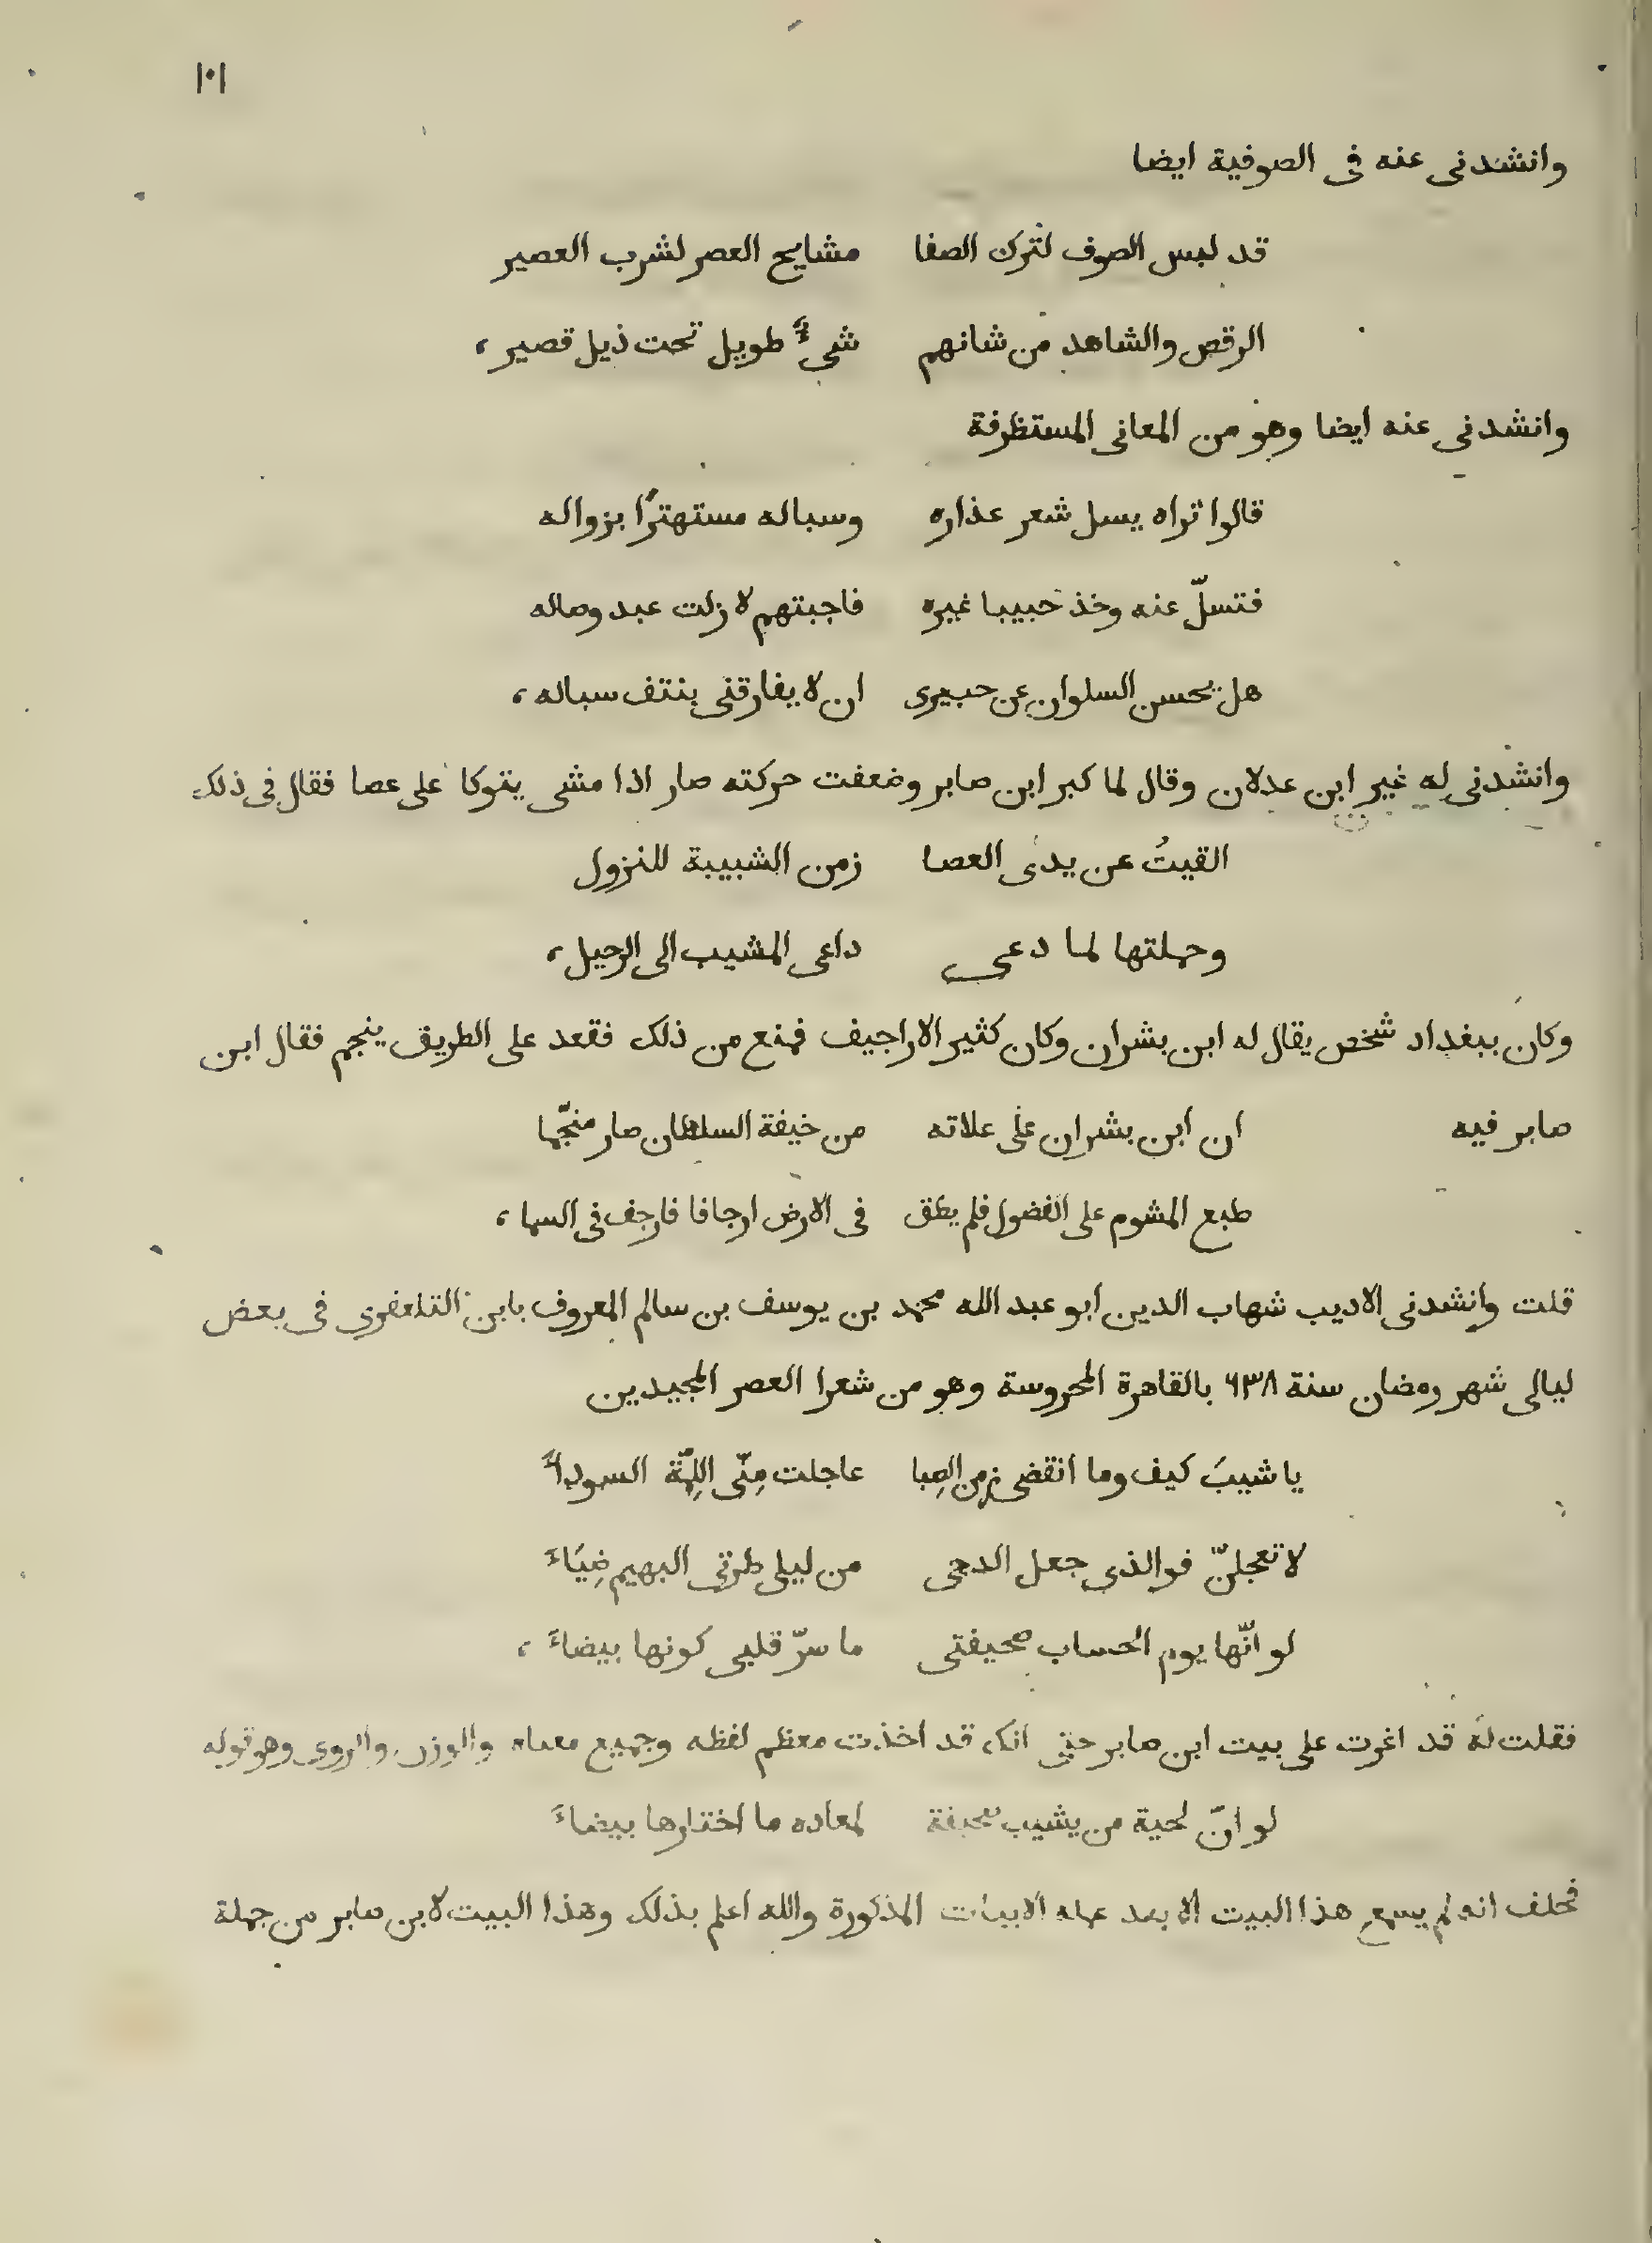 ١٠١
وانشدنى عنه فى الصوفية ايضا
قد لبس الصوف لترك الصفا مشايح العصر لشرب العصير
الرقص والشاهد من شانهم شىءٌ طويل تحت ذيل قصير ،
وانشدنى عنه ايضا وهو من المعانى المستظرفة
قالوا تراه يسل شعر عذاره وسباله مستهترًا بزواله
فتسلّ عنه وخذ حبيبا غيره فاجبتهم لا زلت عبد وصاله
هل يحسن السلوان عن حب يرى ان لا يفارقنى بنتف سباله ،
وانشدنى له غير ابن عدلان وقال لما كبر ابن صابر وضعفت حركته صار اذا مشى يتوكا على عصا فقال فى ذلك
القيتُ عن يدى العصا زمن الشبيبة للنزول
وحملتها لما دعى داعى المشيب الى الرحيل ،
وكان ببغداد شخص يقال له ابن بشران وكان كثير الاراجيف فمنع من ذلك فقعد على الطريق ينجم فقال ابن
صابر فيه ان ابن بشران على علاته من خيفة السلطان صار منجّما
طبع المشوم على الفضول فلم يطق فى الارض ارجافا فارجف فى السما ،
قلت وانشدنى الاديب شهاب الدين ابو عبد الله محمد بن يوسف بن سالم المعروف بابن التلعفرى فى بعض
ليالى شهر رمضان سنة ٦٣٨ بالقاهرة المحروسة وهو من شعرا العصر المجيدين
يا شيبَ كيف وما انقضى زمن الصِبا عاجلت مِنّى اللِمّة السوداءَ
لا تعجلنّ فوالذى جعل الدجى من ليل طرتى البهيم ضِيَاءَ
لو انّها يوم الحساب صحيفتى ما سرّ قلبى كونها بيضاءَ ،
فقلت له قد اغرت على بيت ابن صابر حتى انك قد اخذت معظم لفظه وجميع معناه والوزن والروى وهو قوله
لو انّ لحية من يشيب صحيفة لمعاده ما اختارها بيضاءَ
فحلف انه لم يسمع هذا البيت الا بعد عمله الابيات المذكورة والله اعلم بذلك وهذا البيت لابن صابر من جملة